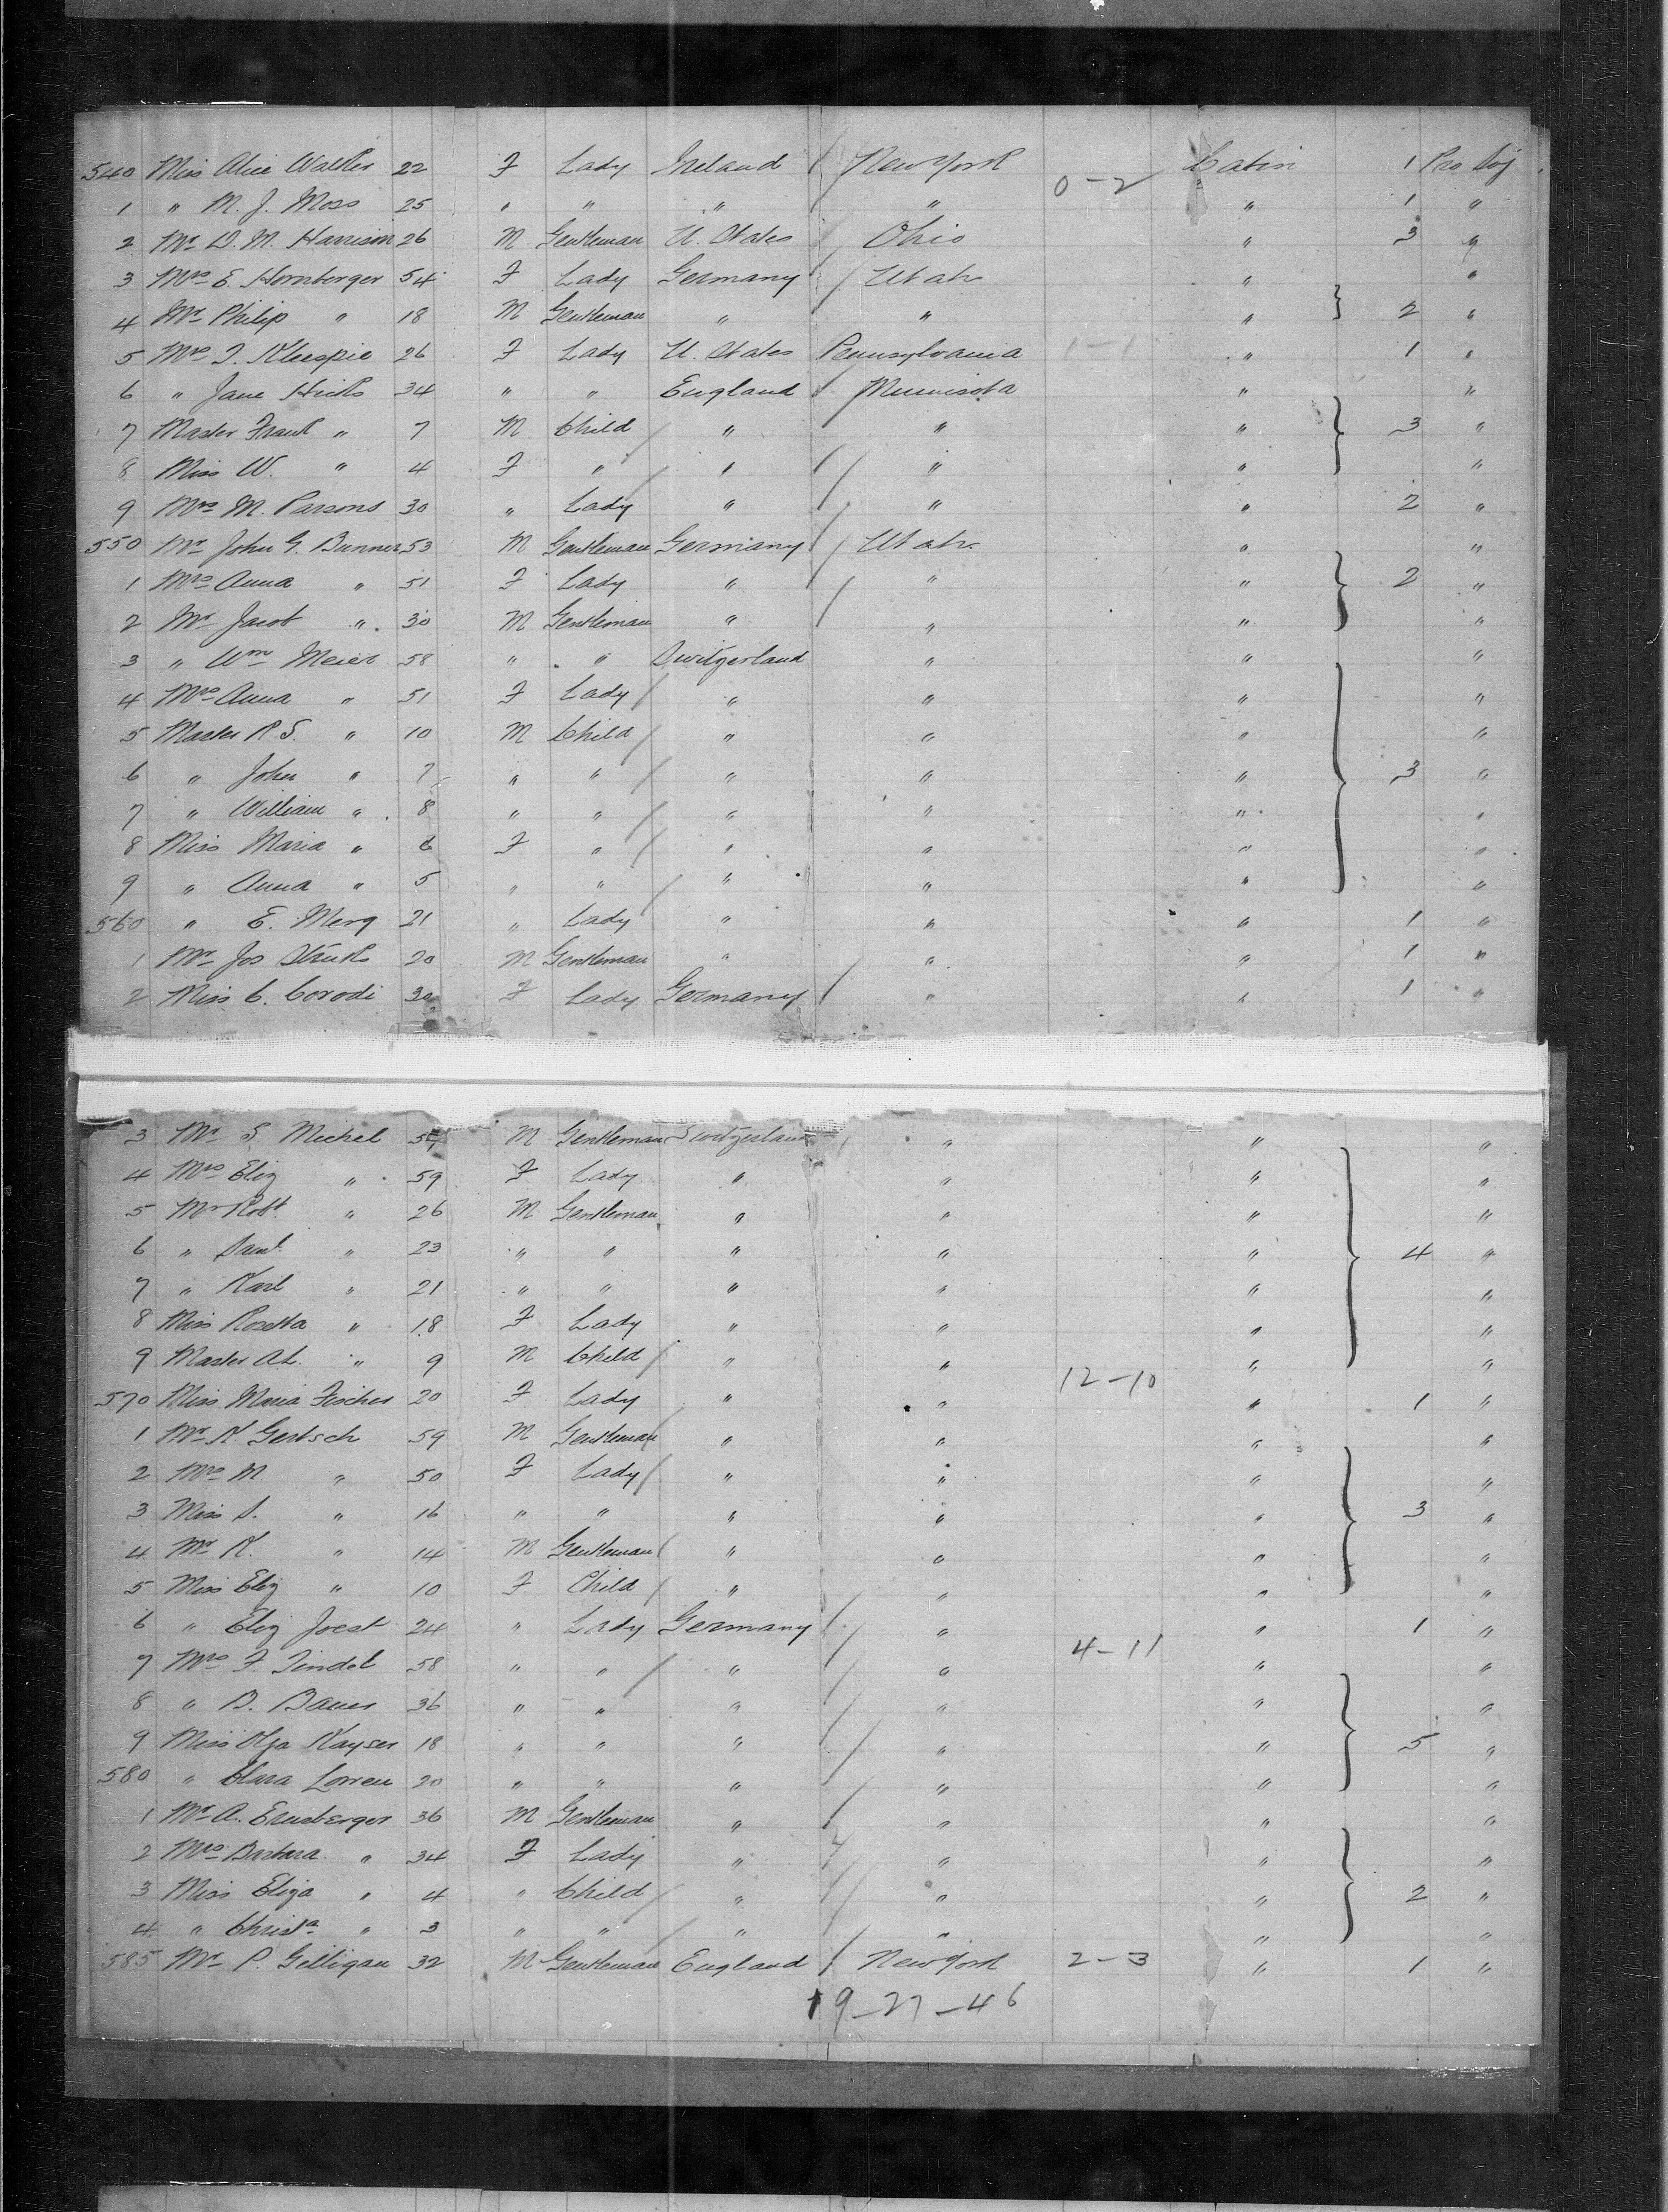 540 Miss Alice Walker 22 F Lady Ireland New York Cabin 1 Pro Soj
0-2
1 " M. J. Moss 25 " " " " " 1 "
2 Mr D. M. Harrison 26 M Gentleman U. States Ohio " 3 "
3 Mrs E. Hornberger 54 F Lady Germany Utah " "
4 Mr Philip " 18 M Gentleman " " " 2 "
5 Mrs J. Kleespie 26 F Lady U. States Pennsylvania 1-1 " 1 "
6 " Jane Hicks 34 " " England Minnisota " "
7 Master Frank " 7 M Child " " " 3 "
8 Miss W. " 4 F " " " " "
9 Mrs M. Parsons 30 " Lady " " " 2 "
550 Mr John G. Bunner 53 M Gentleman Germany Utah " "
1 Mrs Anna " 51 F Lady " " " 2 "
2 Mr Jacob " 30 M Gentleman " " " "
3 " Wm Meier 58 " " Switzerland " " "
4 Mrs Anna " 51 F Lady " " " "
5 Master R S. " 10 M Child " " " "
6 " John " 7 " " " " " 3 "
7 " William " 8 " " " " " "
8 Miss Maria " 6 F " " " " "
9 " Anna " 5 " " " " " "
560 " E. Merq 21 " Lady " " " 1 "
1 Mr Jos 20 M Gentleman " " " 1 "
2 Miss C. Corodi 30 F Lady Germany " " 1 "
3 Mr S. Michel M Gentleman Switzerland " " "
4 Mrs Eliz " 59 F Lady " " " "
5 Mr Robt " 26 M Gentleman " " " "
6 " Saml " 23 " " " " " 4 "
7 " Karl " 21 " " " " " "
8 Miss Rosetta " 18 F Lady " " " "
9 Master " 9 M Child " " " "
12-10
570 Miss Maria Fischer 20 F Lady " " " 1 "
1 Mr K Gertsch 59 M Gentleman " " " "
2 Mrs M " 50 F Lady " " " "
3 Miss S. " 16 " " " " " 3 "
4 Mr K. " 14 M Gentleman " " " "
5 Miss Eliz " 10 F Child " " " "
6 " Eliz Joest 24 " Lady Germany " " 1 "
4-11
7 Mrs F. Tindel 58 " " " " " "
8 " B. Bauer 36 " " " " " "
9 Miss Olga Kayser 18 " " " " " 5 "
580 " Clara Lorren 20 " " " " " "
1 Mr A. Ernsberger 36 M Gentleman " " " "
2 Mrs Barbara " 34 F Lady " " " "
3 Miss Eliza " 4 " Child " " " 2 "
4 " Christa " 3 " " " " " "
585 Mr P. Gilligan 32 M Gentleman England New York 2-3 " 1 "
19-27-46